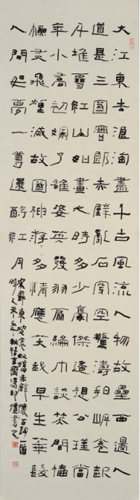 大江東去浪淘盡千古風流人物故壘西邊人
道是三國周郎赤壁亂石驚濤岸捲起
千堆雪江山如畫一時多少豪傑遙想公瑾當
年小喬初嫁了雄姿英發羽扇綸巾談笑間檣
櫓灰飛煙滅故國神遊多情應笑我早生華髮
人間如夢一尊還酹江月